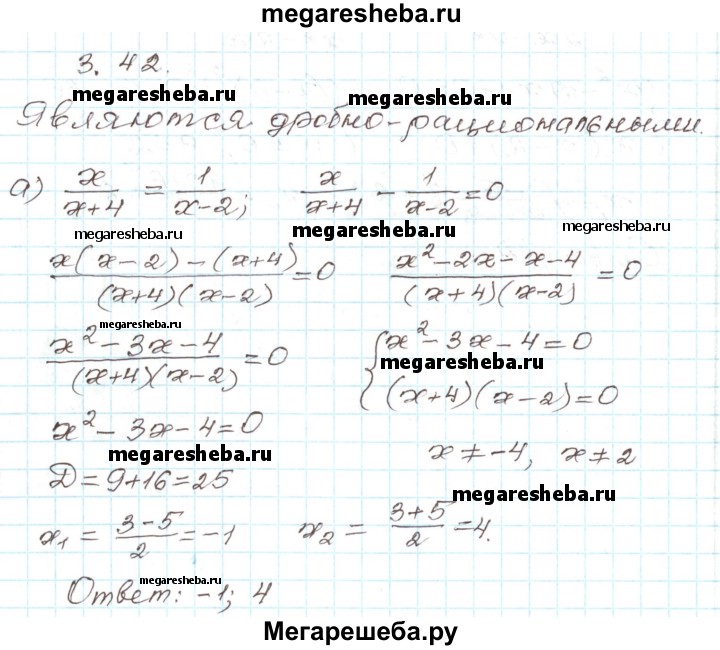 megaresheba.ru
3. 42.
megaresheba.ru megaresheba.ru
Являются дробно-рациональными.
а) x/(x+4) = 1/(x-2); x/(x+4) - 1/(x-2) = 0
megaresheba.ru megaresheba.ru megaresheba.ru
(x(x-2)-(x+4))/((x+4)(x-2)) = 0 (x²-2x-x-4)/((x+4)(x-2)) = 0
megaresheba.ru
(x²-3x-4)/((x+4)(x-2)) = 0 { x²-3x-4=0
megaresheba.ru
(x+4)(x-2)=0
x²-3x-4=0
megaresheba.ru x≠-4, x≠2
D=9+16=25
megaresheba.ru
x₁ = (3-5)/2 = -1 x₂ = (3+5)/2 = 4.
megaresheba.ru
Ответ: -1; 4
Мегарешеба.ру